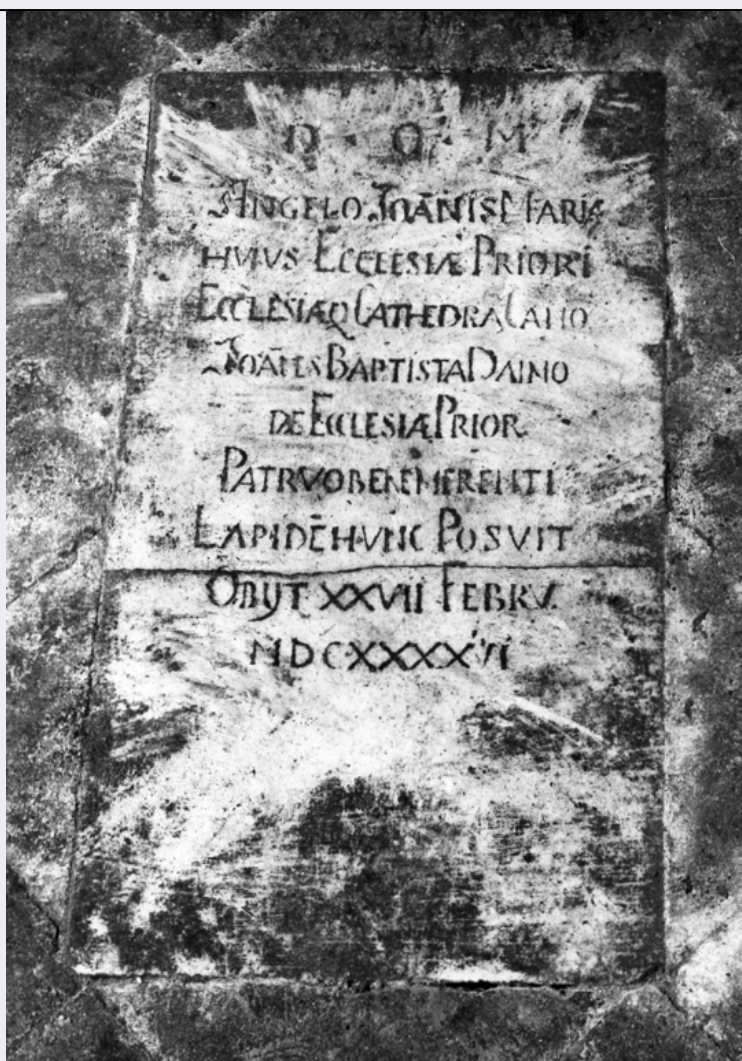 D · O · M
ANGELO JOĀNIS E FARIA
HVIVS ECCLESIÆ PRIORI
ECCLESIÆQ CATHEDRA CANO
JOĀES BAPTISTA DAINO
DE ECCLESIÆ PRIOR
PATRVO BENEMERENTI
LAPIDĒ HVNC POSVIT
OBIJT XXVII FEBRV.
MDCXXXXVI